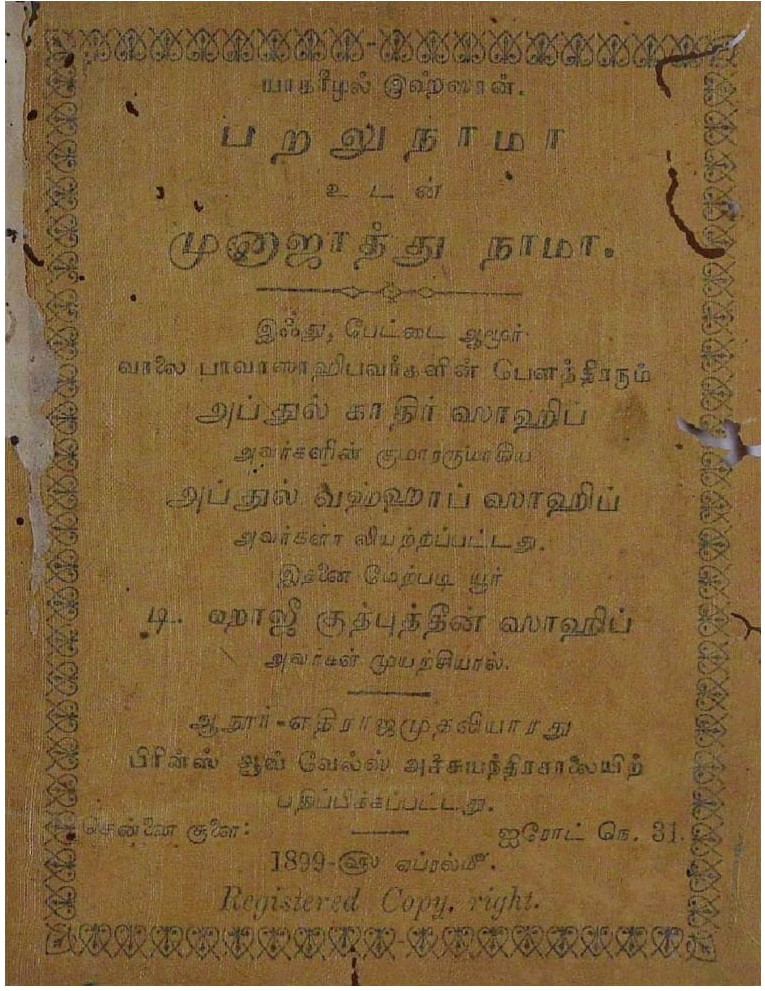 யாகரீமுல் இஹ்ஸான்.
பறலுநாமா
உடன்
முனாஜாத்து நாமா.
இஃது, பேட்டை ஆமூர்
வாலை பாவாஸாஹிபவர்களின் பௌத்திரரும்
அப்துல் காதிர் ஸாஹிப்
அவர்களின் குமாரருமாகிய
அப்துல் வஹ்ஹாப் ஸாஹிப்
அவர்களா லியற்றப்பட்டது.
இதனை மேற்படி யூர்
டி. ஹாஜீ குத்புத்தீன் ஸாஹிப்
அவர்கள் முயற்சியால்.
ஆதூர்-எதிராஜமுதலியாரது
பிரின்ஸ் ஆவ் வேல்ஸ் அச்சுயந்திரசாலையிற்
பதிப்பிக்கப்பட்டது.
சென்னை சூளை: ஐரோட் நெ. 31.
1899-௵ ஏப்ரல்௴.
Registered Copy, right.